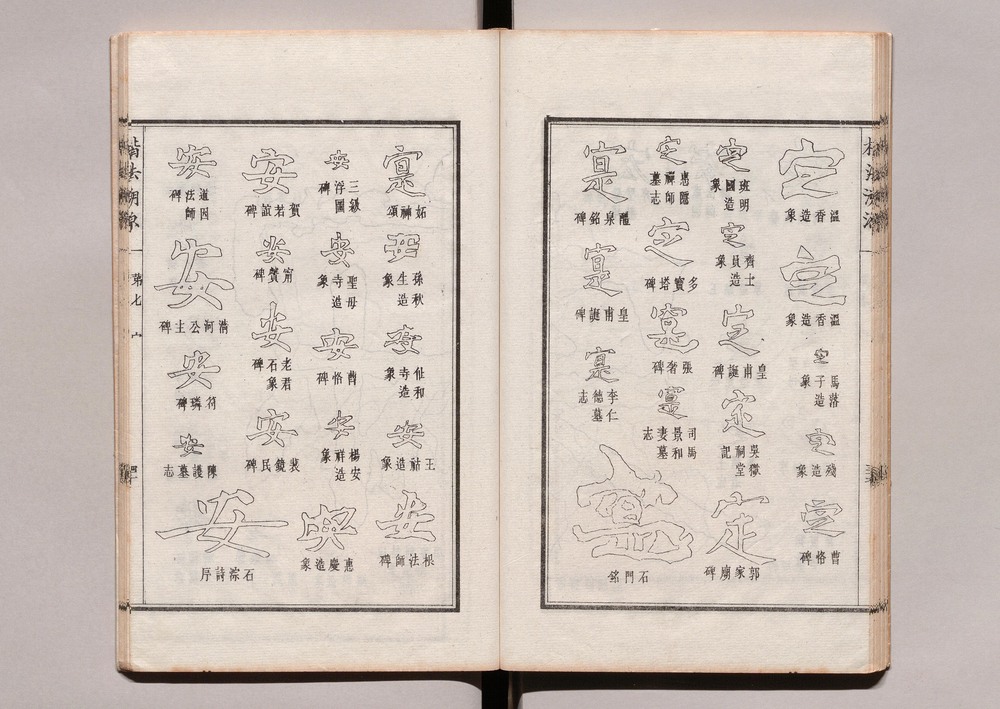 定
溫香造象
定
溫香造象
定
馬落子造象
定
殘造象
定
曹恪碑
定
班明國造象
定
齊士員造象
定
皇甫誕碑
定
吳嶽祠堂記
定
郭家廟碑
定
惠隱禪師墓志
定
多寶塔碑
寔
張奢碑
寔
司馬景和妻墓志
寔
醴泉銘碑
寔
皇甫誕碑
寔
李仁德墓志
寔
石門銘
寔
妬神頌
安
孫秋生造象
安
仙和寺造象
安
王祜造象
安
根法師碑
安
三級浮圖碑
安
聖母寺造象
安
曹恪碑
安
楊安祥造象
安
惠慶造象
安
賀若誼碑
安
甯贙碑
安
老君石象碑
安
裴鏡民碑
安
道因法師碑
安
清河公主碑
安
符璘碑
安
陳護墓志
安
石淙詩序
楷法溯源 第七 宀